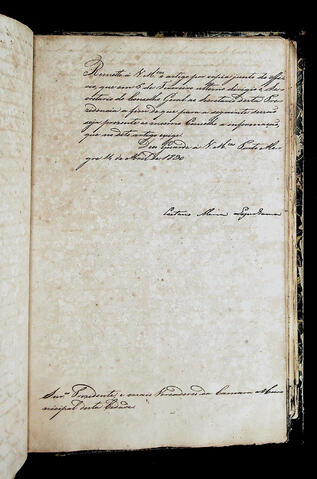 Remetto á V. M.ces o artigo por copia junto do offi-
cio, que em 5 de Fevereiro ultimo dirigio o Se-
cretario do Conselho Geral ao Secretario desta Pre-
sidencia a fim de que para a seguinte
seja presente ao mesmo Conselho a informação,
que no dito artigo exige.
Deos Guarde á V. M.ces Porto Ale-
gre 14 de Abril de 1830
Caetano Maria Lopes Gama
Snr.s Presidente, e mais Vereadores da Camara Mu-
nicipal desta Cidade.